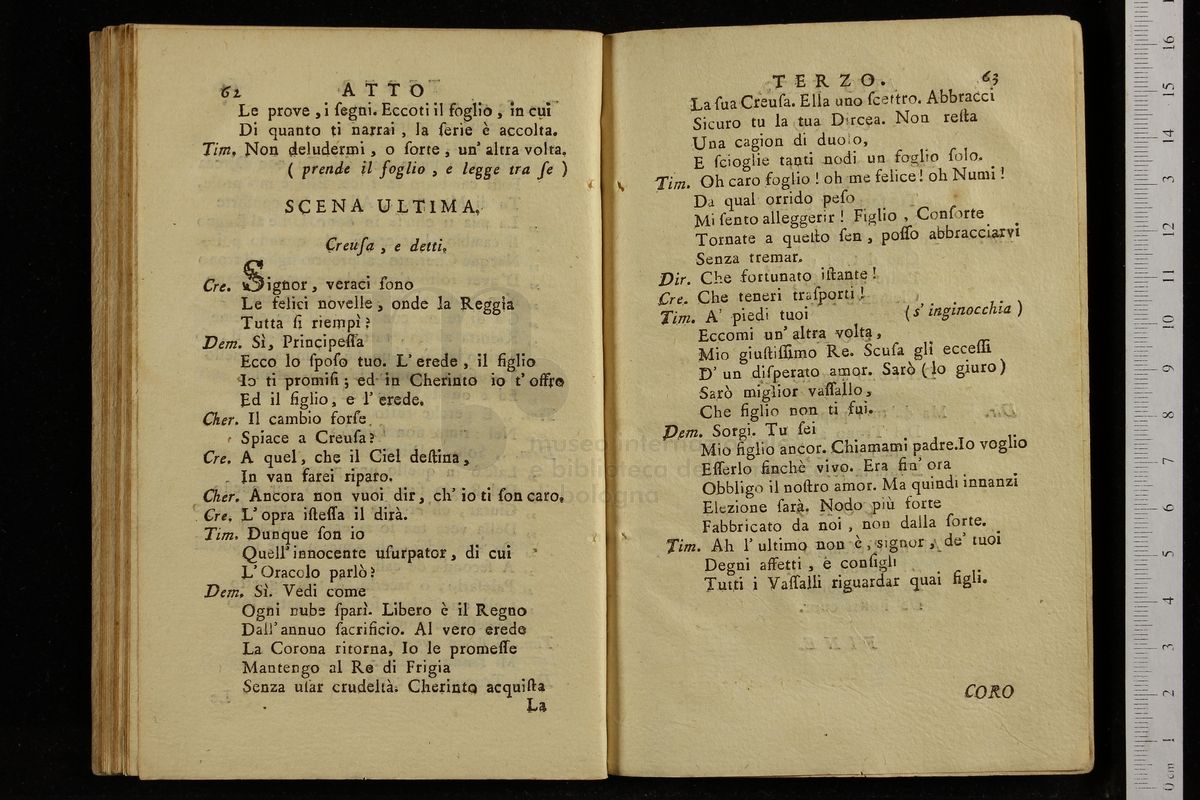 62 ATTO
Le prove, i ſegni. Eccoti il foglio, in cui
Di quanto ti narrai, la ſerie è accolta.
Tim. Non deludermi, o ſorte, un' altra volta.
( prende il foglio, e legge tra ſe )
SCENA ULTIMA.
Creuſa, e detti.
Cre. Signor, veraci ſono
Le felici novelle, onde la Reggia
Tutta ſi riempì?
Dem. Sì, Principeſſa
Ecco lo ſpoſo tuo. L' erede, il figlio
Io ti promiſi; ed in Cherinto io t' offro
Ed il figlio, e l' erede.
Cher. Il cambio forſe
Spiace a Creuſa?
Cre. A quel, che il Ciel deſtina,
In van farei riparo.
Cher. Ancora non vuoi dir, ch' io ti ſon caro.
Cre. L' opra iſteſſa il dirà.
Tim. Dunque ſon io
Quell' innocente uſurpator, di cui
L' Oracolo parlò?
Dem. Sì. Vedi come
Ogni nube ſparì. Libero è il Regno
Dall' annuo ſacrificio. Al vero erede
La Corona ritorna, Io le promeſſe
Mantengo al Re di Frigia
Senza uſar crudeltà. Cherinto acquiſta
La
TERZO. 63
La ſua Creuſa. Ella uno ſcettro. Abbracci
Sicuro tu la tua Dircea. Non reſta
Una cagion di duolo,
E ſcioglie tanti nodi un foglio ſolo.
Tim. Oh caro foglio! oh me felice! oh Numi!
Da qual orrido peſo
Mi ſento alleggerir! Figlio, Conſorte
Tornate a queſto ſen, poſſo abbracciarvi
Senza tremar.
Dir. Che fortunato iſtante!
Cre. Che teneri traſporti!
Tim. A' piedi tuoi (s' inginocchia)
Eccomi un' altra volta,
Mio giuſtiſſimo Re. Scuſa gli ecceſſi
D' un diſperato amor. Sarò (lo giuro)
Sarò miglior vaſſallo,
Che figlio non ti fui.
Dem. Sorgi. Tu ſei
Mio figlio ancor. Chiamami padre. Io voglio
Eſſerlo finchè vivo. Era fin' ora
Obbligo il noſtro amor. Ma quindi innanzi
Elezione ſarà. Nodo più forte
Fabbricato da noi, non dalla ſorte.
Tim. Ah l' ultimo non è, signor, de' tuoi
Degni affetti, è conſigli
Tutti i Vaſſalli riguardar quai figli.
CORO